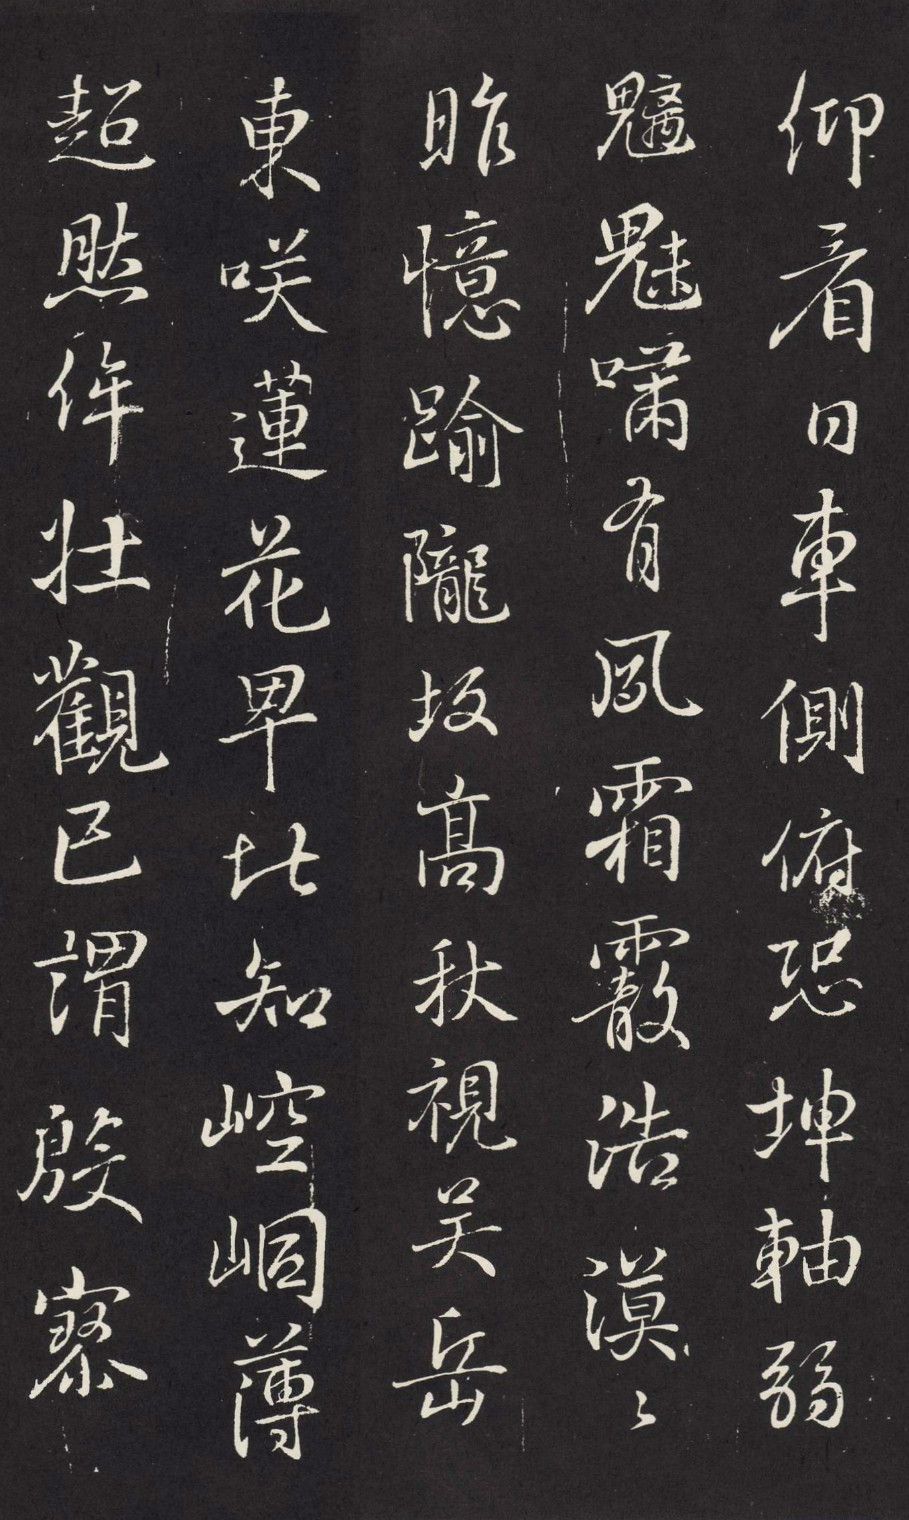 仰看日車側俯恐坤軸弱
魑魅嘯有風霜霰浩漠〻
昨憶踰隴坂高秋視吴岳
東咲蓮花卑北知崆峒薄
超然侔壯觀已謂殷寥